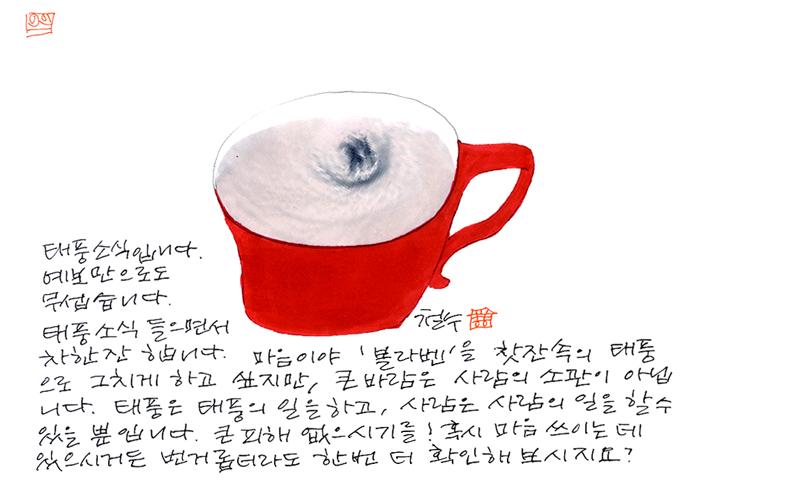 태풍소식입니다.
예보만으로도
무섭습니다.
태풍소식 들으면서
차한잔 합니다. 마음이야 '볼라벤'을 찻잔속의 태풍
으로 그치게 하고 싶지만, 큰바람은 사람의 소관이 아닙
니다. 태풍은 태풍의 일을하고, 사람은 사람의 일을 할수
있을 뿐입니다. 큰피해 없으시기를! 혹시 마음 쓰이는 데
있으시거든 번거롭더라도 한번 더 확인해 보시지요?
철수